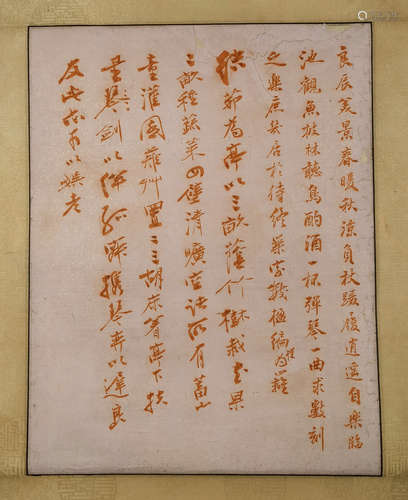 良辰美景春暖秋涼負杖躡履逍遙自樂臨
池觀魚披林聽鳥酌酒一杯彈琴一曲求數刻
之樂庶居於待終築室數極編槿為籬
結茆為亭以三畝蔭竹樹栽花果
二畝種蔬菜四壁清曠空諸所有蓄山
童灌園薙艸置二三胡床着亭下挾
書劍以伴孤寂攜琴弈以遲良
友此亦可以娛老